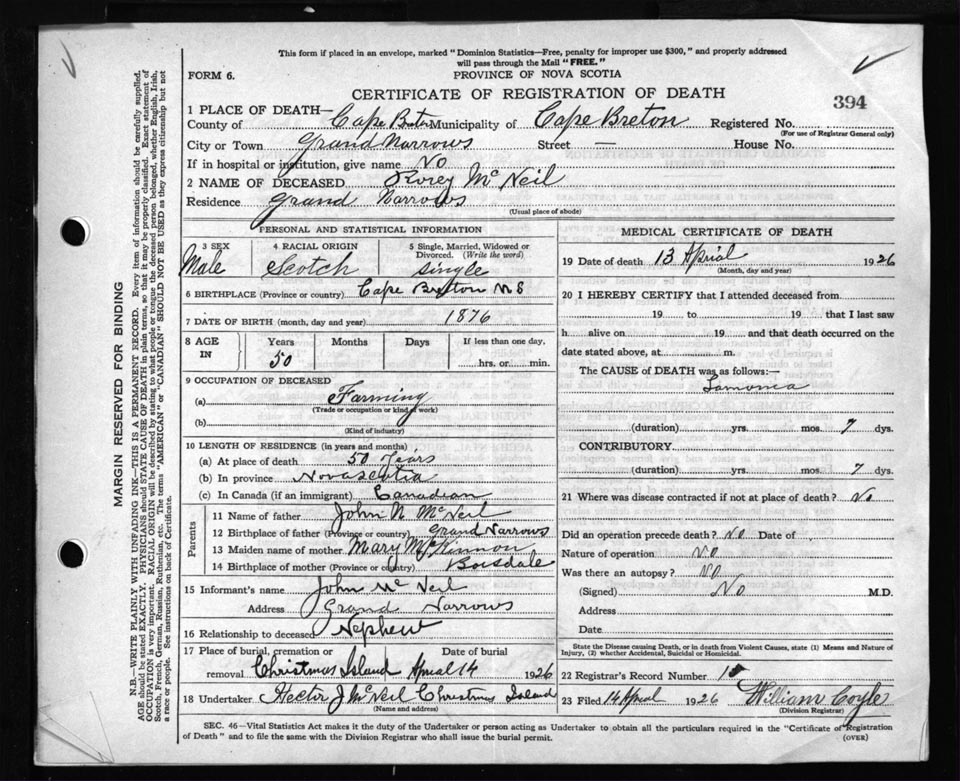 This form if placed in an envelope, marked "Dominion Statistics—Free, penalty for improper use $300," and properly addressed
will pass through the Mail "FREE."
FORM 6.
PROVINCE OF NOVA SCOTIA
CERTIFICATE OF REGISTRATION OF DEATH
394
1 PLACE OF DEATH—
County of Cape Breton Municipality of Cape Breton Registered No.
(For use of Registrar General only)
City or Town Grand Narrows Street — House No.
If in hospital or institution, give name No
2 NAME OF DECEASED Rorey McNeil
Residence Grand Narrows
(Usual place of abode)
PERSONAL AND STATISTICAL INFORMATION
3 SEX Male
4 RACIAL ORIGIN Scotch
5 Single, Married, Widowed or Divorced. (Write the word) single
6 BIRTHPLACE (Province or country) Cape Breton N S
7 DATE OF BIRTH (month, day and year) 1876
8 AGE IN Years 50 Months Days If less than one day, hrs. or min.
9 OCCUPATION OF DECEASED
(a) Farming
(Trade or occupation or kind of work)
(b)
(Kind of industry)
10 LENGTH OF RESIDENCE (in years and months)
(a) At place of death 50 Years
(b) In province Novascotia
(c) In Canada (if an immigrant) Canadian
Parents
11 Name of father John N McNeil
12 Birthplace of father (Province or country) Grand Narrows
13 Maiden name of mother Mary McKinnon
14 Birthplace of mother (Province or country) Boisdale
15 Informant's name John McNeil
Address Grand Narrows
16 Relationship to deceased Nephew
17 Place of burial, cremation or removal Christmas Island
Date of burial Aprial 14 1926
18 Undertaker Hector J McNeil Christmas Island
(Name and address)
MEDICAL CERTIFICATE OF DEATH
19 Date of death 13 Aprial 1926
(Month, day and year)
20 I HEREBY CERTIFY that I attended deceased from
19 to 19 that I last saw
h alive on 19 and that death occurred on the
date stated above, at m.
The CAUSE OF DEATH was as follows:—
(duration) yrs. mos. 7 dys.
CONTRIBUTORY
(duration) yrs. mos. 7 dys.
21 Where was disease contracted if not at place of death? No
Did an operation precede death? No Date of
Nature of operation No
Was there an autopsy? No
(Signed) No M.D.
Address
Date
State the Disease causing Death, or in death from Violent Causes, state (1) Means and Nature of Injury, (2) whether Accidental, Suicidal or Homicidal.
22 Registrar's Record Number
23 Filed 14 Aprial 1926 William Coyle
(Division Registrar)
SEC. 46—Vital Statistics Act makes it the duty of the Undertaker or person acting as Undertaker to obtain all the particulars required in the "Certificate of Registration
of Death" and to file the same with the Division Registrar who shall issue the burial permit.
(OVER)
MARGIN RESERVED FOR BINDING
N.B.—WRITE PLAINLY WITH UNFADING INK—THIS IS A PERMANENT RECORD. Every item of information should be carefully supplied.
AGE should be stated EXACTLY. PHYSICIANS should STATE CAUSE OF DEATH in plain terms, so that it may be properly classified. Exact statement of
OCCUPATION is very important. RACIAL ORIGIN will be described by stating to what people or tongue the deceased person belonged, whether English, Irish,
Scotch, French, German, Russian, Ruthenian, etc. The terms "AMERICAN" or "CANADIAN" SHOULD NOT BE USED as they express citizenship but not
a race or people. See instructions on back of Certificate.